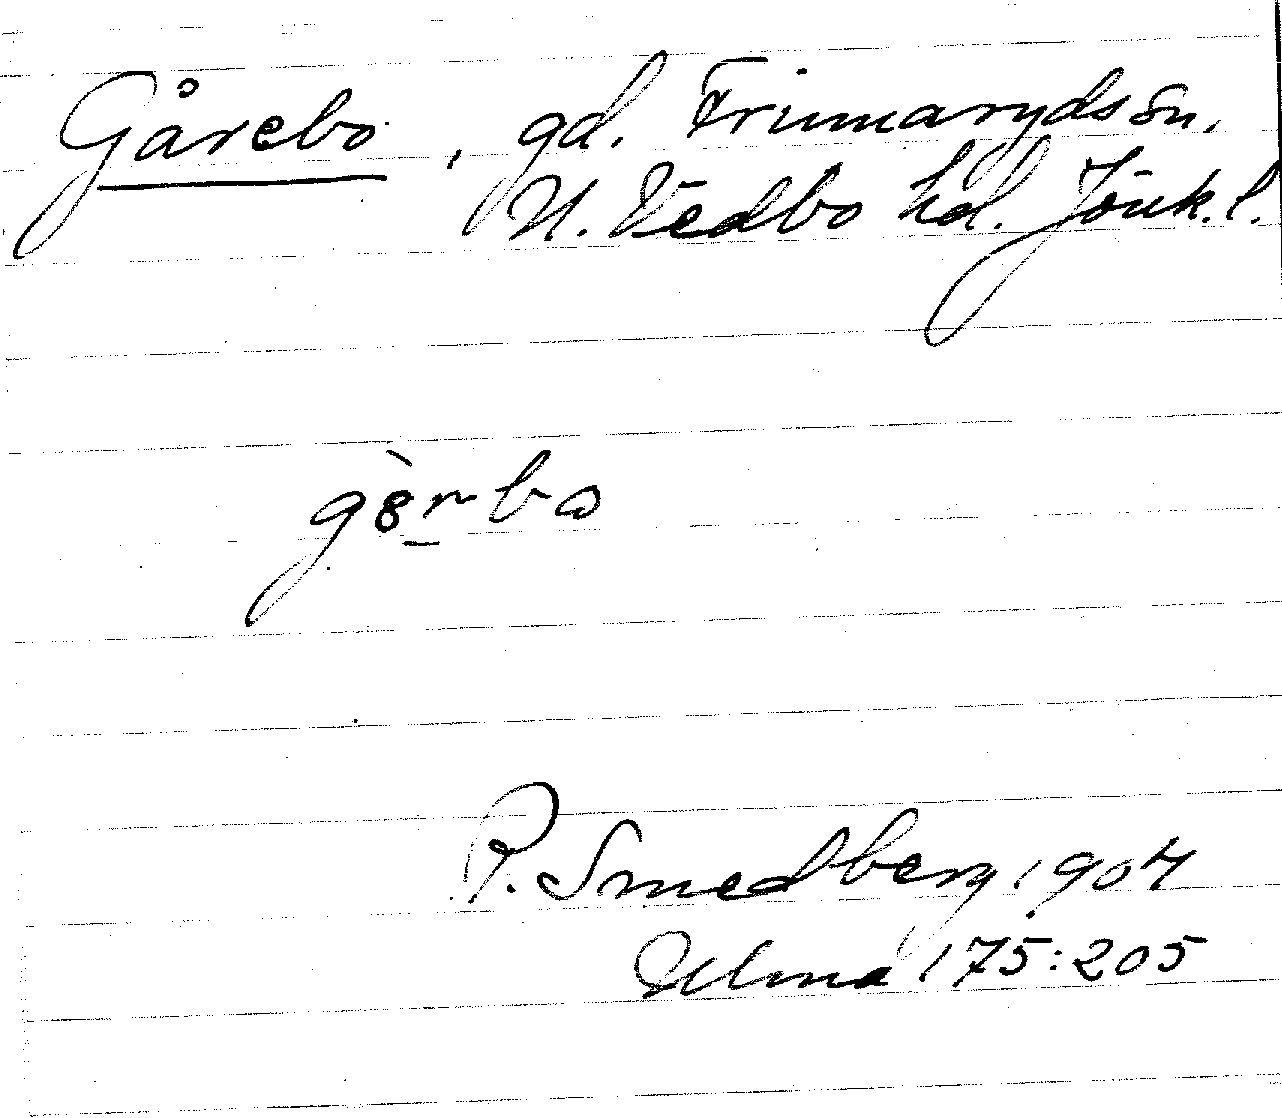 Gårebo, gd. Frinnaryds sn.
N. Vedbo hd. Jönk. l.
gòrbo
P. Smedberg 1904
Ulma 175:205